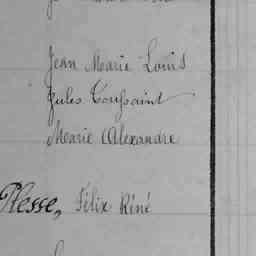 Jean Marie Louis
Jules Toussaint
Marie Alexandre
Plesse, Félix Réné